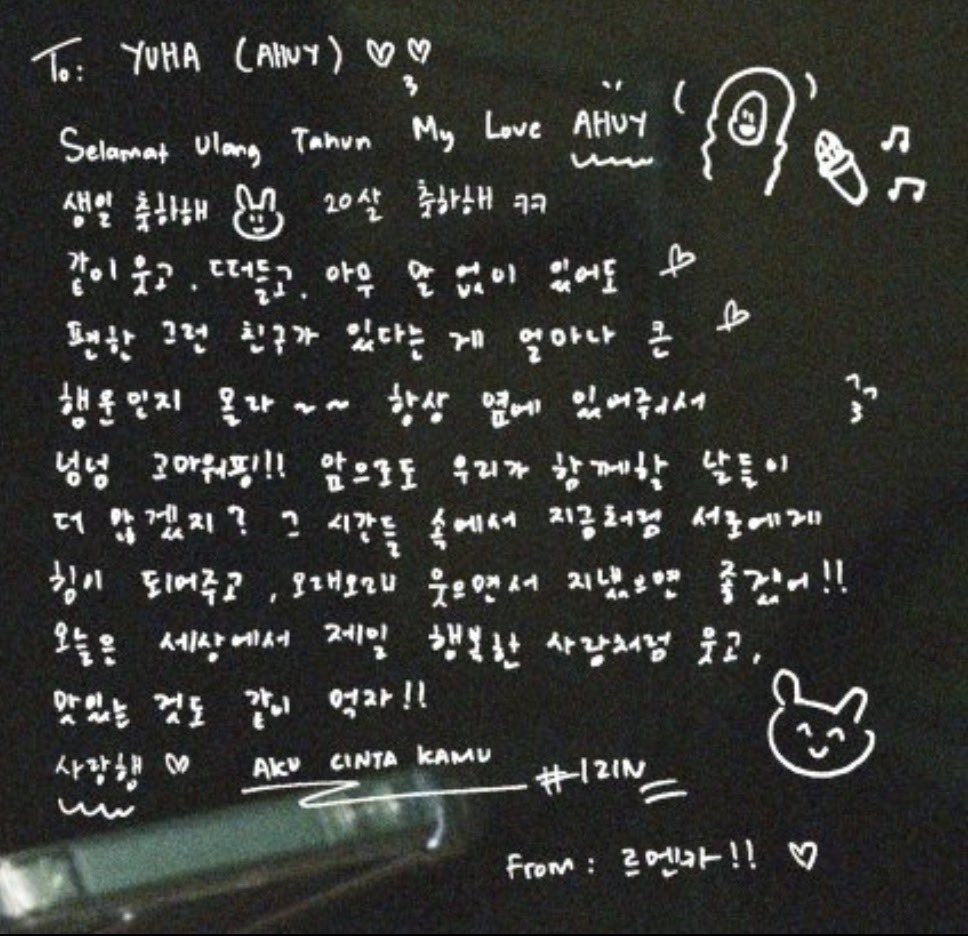 To: YUHA (AHUY) ♡♡
Selamat Ulang Tahun My Love AHUY
생일 축하해 20살 축하해 ㅋㅋ
같이 웃고, 떠들고, 아무 말 없이 있어도
편한 그런 친구가 있다는 게 얼마나 큰
행운인지 몰라 ~~ 항상 옆에 있어줘서
넘넘 고마워핑!!! 앞으로도 우리가 함께할 날들이
더 많겠지? 그 시간들 속에서 지금처럼 서로에게
힘이 되어주고, 오래오래 웃으면서 지냈으면 좋겠어!!
오늘은 세상에서 제일 행복한 사람처럼 웃고,
맛있는 것도 같이 먹자!!
사랑행 ♡ AKU CINTA KAMU
From: 르멘카!! ♡